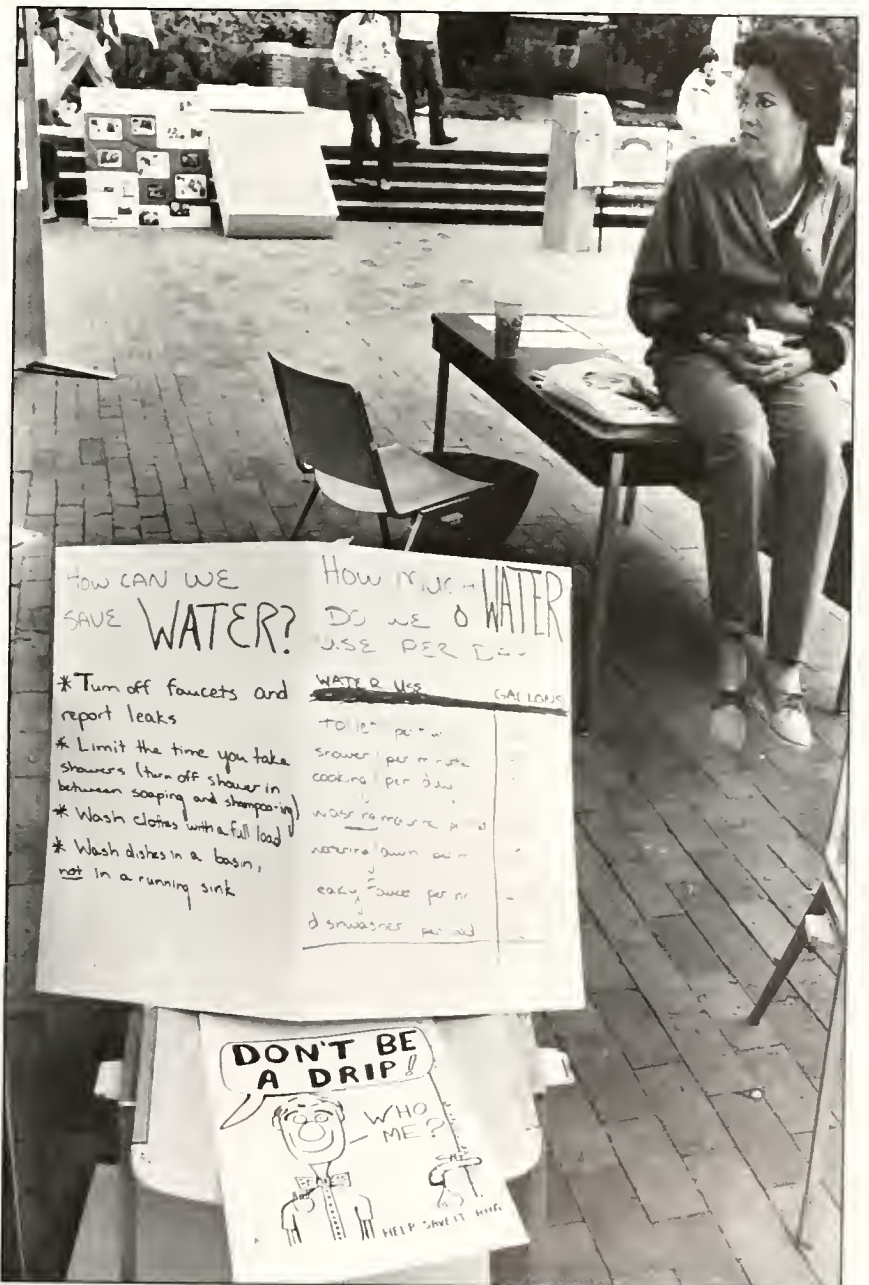 HOW CAN WE
SAVE WATER?
* Turn off faucets and
report leaks
* Limit the time you take
showers (turn off shower in
between soaping and shampooing)
* Wash clothes with a full load
* Wash dishes in a basin,
not in a running sink
HOW MUCH WATER
DO WE
USE PER DAY
WATER USE GALLONS
toilet per
shower per minute
cooking per day
washing machine per
watering lawn
leaky faucet per
dishwasher per load
DON'T BE
A DRIP!
WHO
ME?
HELP SAVE IT